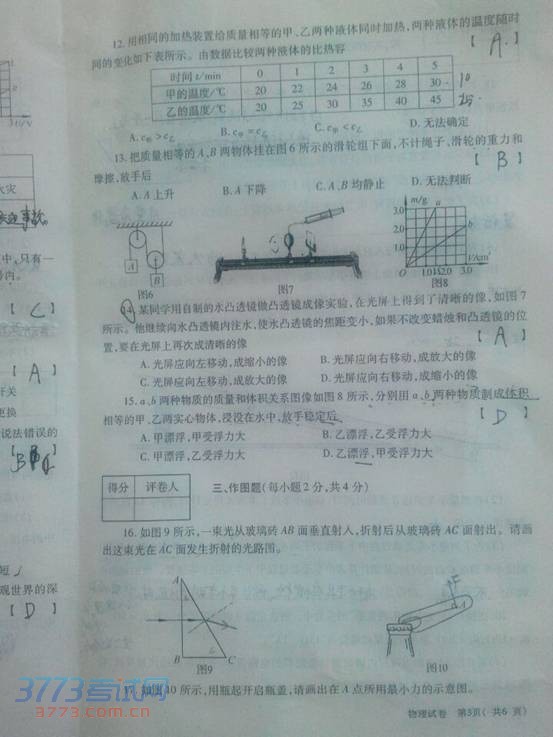 12. 用相同的加热装置给质量相等的甲、乙两种液体同时加热,两种液体的温度随时
间的变化如下表所示。由数据比较两种液体的比热容 【 A. 】
时间 t/min 0 1 2 3 4 5
甲的温度/℃ 20 22 24 26 28 30
乙的温度/℃ 20 25 30 35 40 45
A. c甲>c乙 B. c甲=c乙 C. c甲<c乙 D. 无法确定
13. 把质量相等的 A、B 两物体挂在图 6 所示的滑轮组下面,不计绳子、滑轮的重力和
摩擦,放手后 【 B 】
A. A 上升 B. A 下降 C. A、B 均静止 D. 无法判断
图6 图7 图8
14. 某同学用自制的水凸透镜做凸透镜成像实验,在光屏上得到了清晰的像,如图 7
所示。他继续向水凸透镜内注水,使水凸透镜的焦距变小,如果不改变蜡烛和凸透镜的位
置,要在光屏上再次成清晰的像 【 A 】
A. 光屏应向左移动,成缩小的像 B. 光屏应向右移动,成放大的像
C. 光屏应向左移动,成放大的像 D. 光屏应向右移动,成缩小的像
15. a、b 两种物质的质量和体积关系图像如图 8 所示,分别用 a、b 两种物质制成体积
相等的甲、乙两实心物体,浸没在水中,放手稳定后 【 D 】
A. 甲漂浮,甲受浮力大 B. 乙漂浮,乙受浮力大
C. 甲漂浮,乙受浮力大 D. 乙漂浮,甲受浮力大
得分 评卷人
三、作图题(每小题2分,共4分)
16. 如图 9 所示,一束光从玻璃砖 AB 面垂直射入,折射后从玻璃砖 AC 面射出。请画
出这束光在 AC 面发生折射的光路图。
A
B C
图9 图10
17. 如图 10 所示,用瓶起开启瓶盖,请画出在 A 点所用最小力的示意图。
物理试卷 第3页(共6页)
火灾
中,只有一
【 C 】
【 A 】
开关
更换
说法错误的
观世界的深
【 D 】
3773考试网
www.3773.com.cn